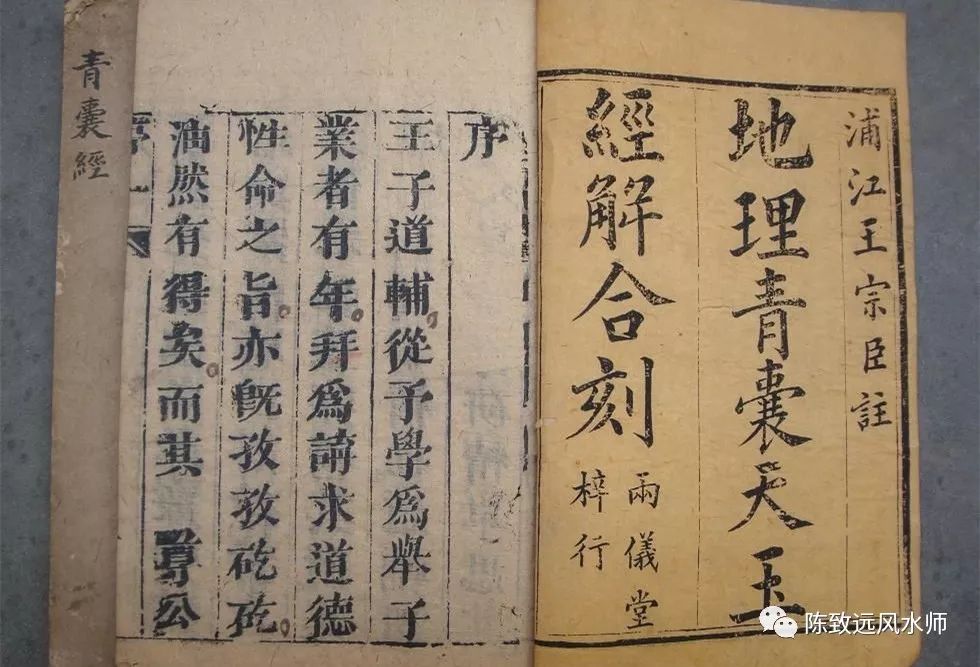 浦江王宗臣註
地理青囊天玉
經解合刻
兩儀堂
梓行
序
王子道輔從予學爲舉子
業者有年拜爲講求道德
性命之旨亦旣孜孜矻矻
油然有得矣而其尊公
青囊經
陈致远风水师